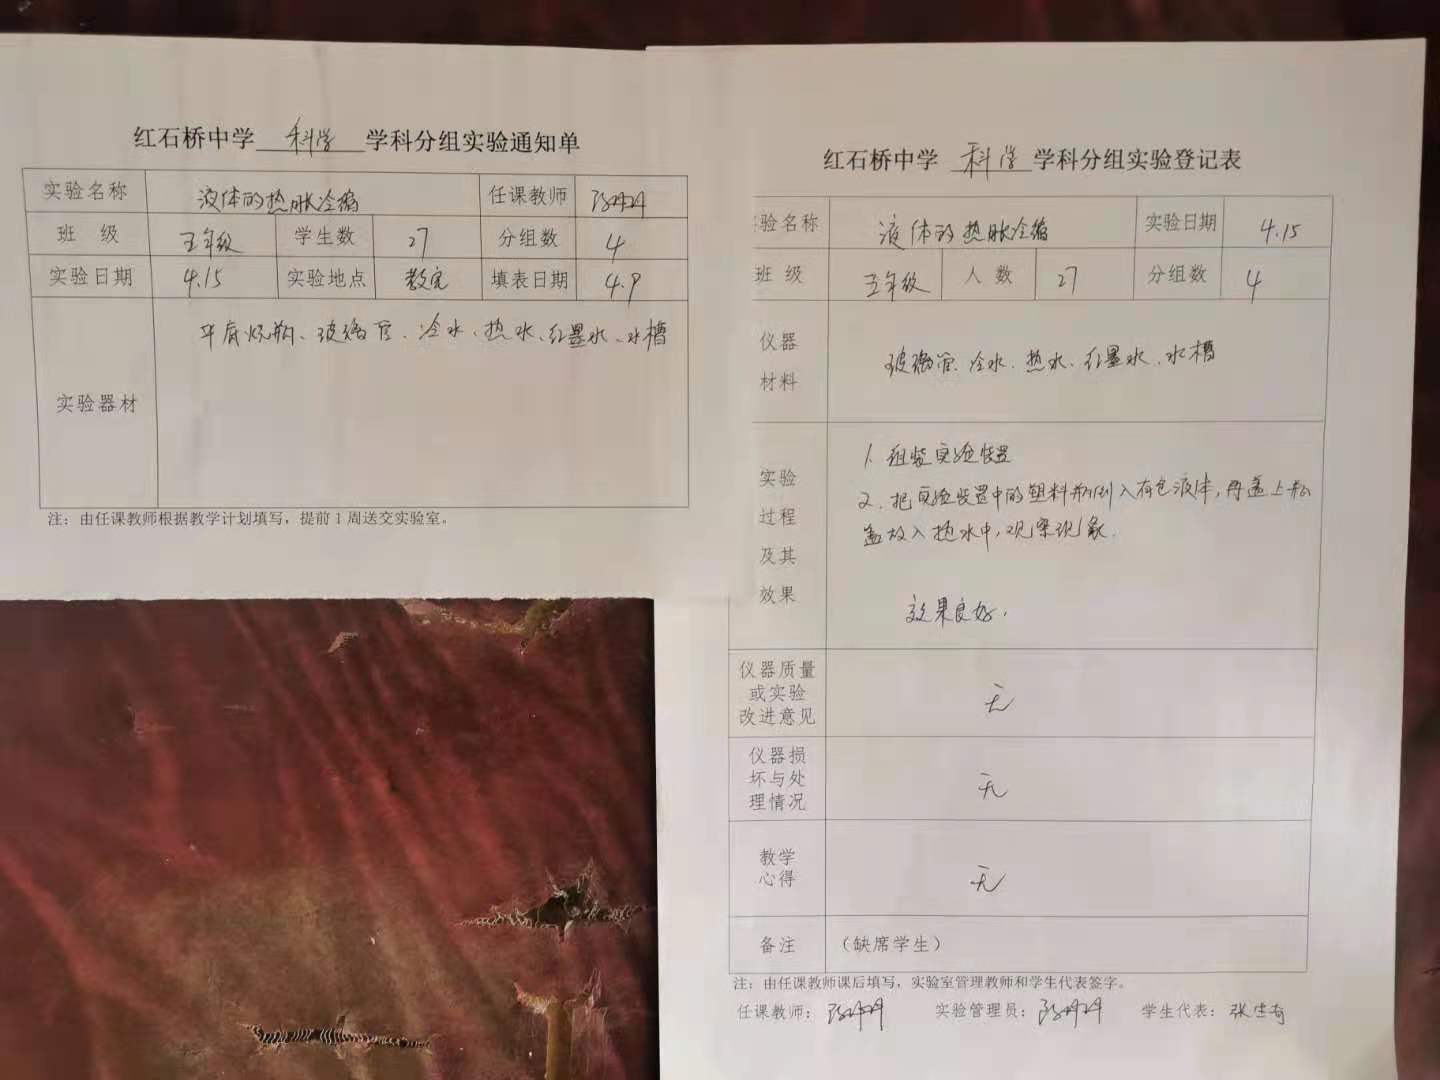 红石桥中学 科学 学科分组实验通知单
实验名称 液体的热胀冷缩 任课教师
班 级 五年级 学生数 27 分组数 4
实验日期 4.15 实验地点 教室 填表日期 4.9
实验器材 平底烧瓶、玻璃管、冷水、热水、红墨水、水槽
注：由任课教师根据教学计划填写，提前1周送交实验室。
红石桥中学 科学 学科分组实验登记表
实验名称 液体的热胀冷缩 实验日期 4.15
班 级 五年级 人 数 27 分组数 4
仪器
材料
玻璃管、冷水、热水、红墨水、水槽
实验
过程
及其
效果
1、组装实验装置
2、把实验装置中的塑料瓶倒入有色液体，再盖上瓶
盖放入热水中，观察现象.
效果良好.
仪器质量
或实验
改进意见
无
仪器损
坏与处
理情况
无
教学
心得
无
备注 （缺席学生）
注：由任课教师课后填写，实验室管理教师和学生代表签字。
任课教师： 实验管理员： 学生代表：